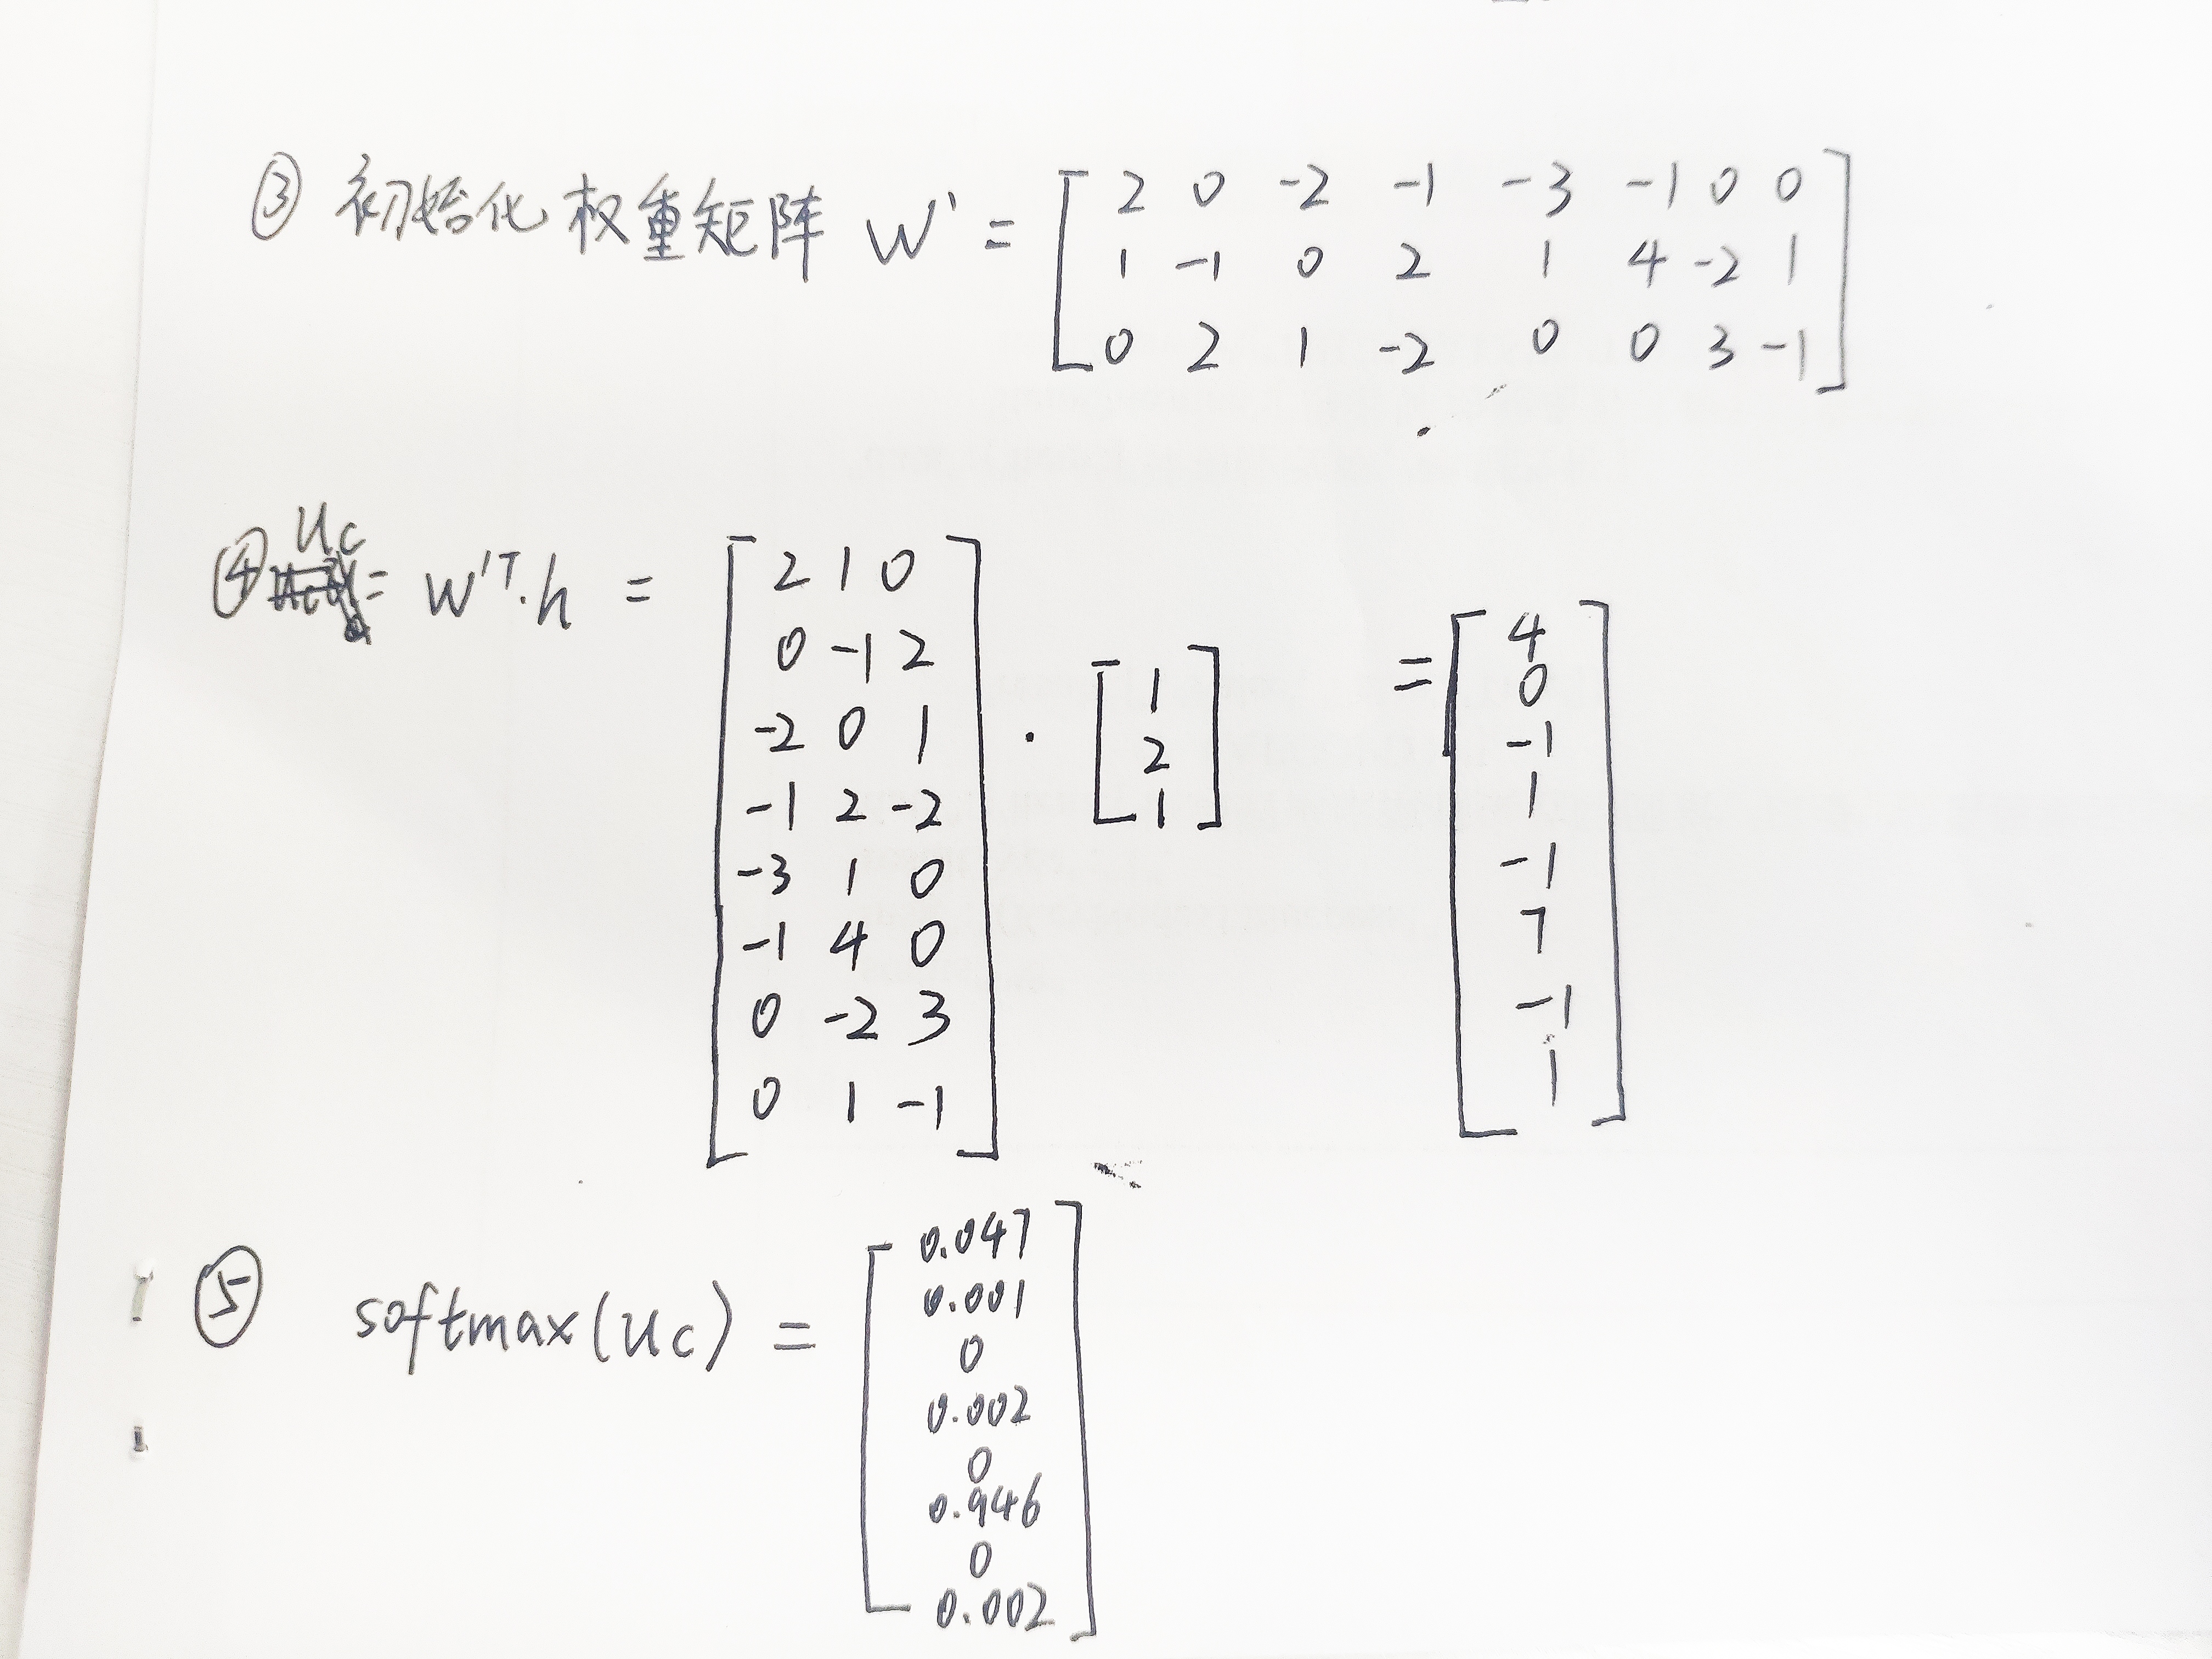 ③ 初始化权重矩阵 W' = [ 2 0 -2 -1 -3 -1 0 0
1 -1 0 2 1 4 -2 1
0 2 1 -2 0 0 3 -1 ]
④ Uc = W'T·h = [ 2 1 0
0 -1 2
-2 0 1
-1 2 -2
-3 1 0
-1 4 0
0 -2 3
0 1 -1 ]
· [ 1
2
1 ]
= [ 4
0
-1
1
-1
7
-1
1 ]
⑤ softmax(Uc) = [ 0.047
0.001
0
0.002
0
0.946
0
0.002 ]